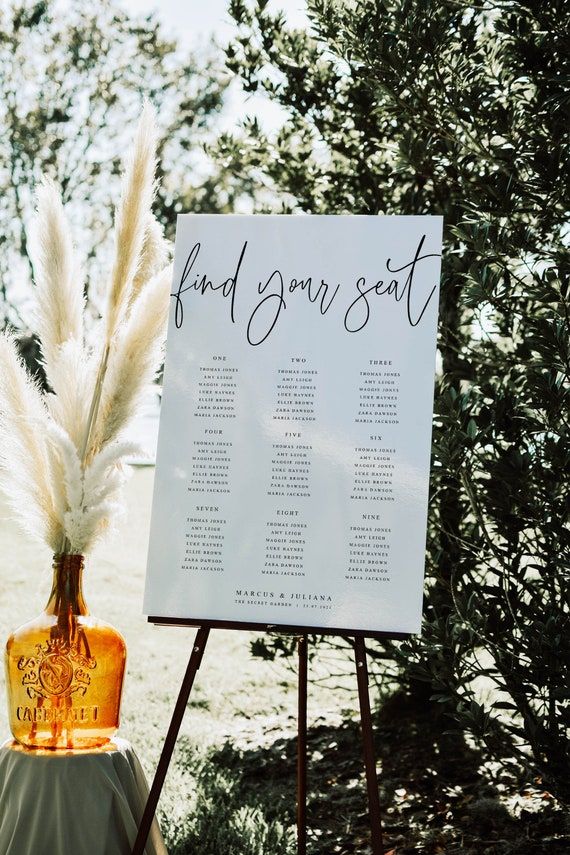 find your seat
ONE
THOMAS JONES
AMY LEIGH
MAGGIE JONES
LUKE HAYNES
ELLIE BROWN
ZARA DAWSON
MARIA JACKSON
TWO
THOMAS JONES
AMY LEIGH
MAGGIE JONES
LUKE HAYNES
ELLIE BROWN
ZARA DAWSON
MARIA JACKSON
THREE
THOMAS JONES
AMY LEIGH
MAGGIE JONES
LUKE HAYNES
ELLIE BROWN
ZARA DAWSON
MARIA JACKSON
FOUR
THOMAS JONES
AMY LEIGH
MAGGIE JONES
LUKE HAYNES
ELLIE BROWN
ZARA DAWSON
MARIA JACKSON
FIVE
THOMAS JONES
AMY LEIGH
MAGGIE JONES
LUKE HAYNES
ELLIE BROWN
ZARA DAWSON
MARIA JACKSON
SIX
THOMAS JONES
AMY LEIGH
MAGGIE JONES
LUKE HAYNES
ELLIE BROWN
ZARA DAWSON
MARIA JACKSON
SEVEN
THOMAS JONES
AMY LEIGH
MAGGIE JONES
LUKE HAYNES
ELLIE BROWN
ZARA DAWSON
MARIA JACKSON
EIGHT
THOMAS JONES
AMY LEIGH
MAGGIE JONES
LUKE HAYNES
ELLIE BROWN
ZARA DAWSON
MARIA JACKSON
NINE
THOMAS JONES
AMY LEIGH
MAGGIE JONES
LUKE HAYNES
ELLIE BROWN
ZARA DAWSON
MARIA JACKSON
MARCUS & JULIANA
THE SECRET GARDEN |
CABERNET